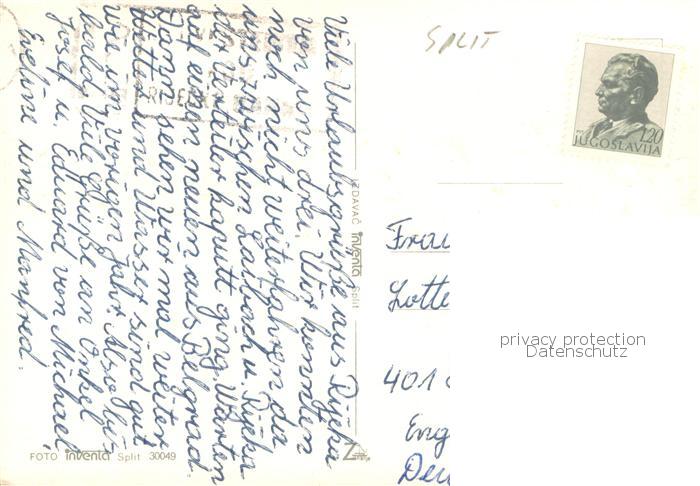 Viele Urlaubsgrüße aus Rijeka
von uns drei. Wir konnten
noch nicht weiterfahren da
uns zwischen Laibach u. Rijeka
der Verteiler kaputt ging. Warten
auf einen neuen aus Belgrad.
Dann sehen wir mal weiter
Hütte und Wasser sind gut
wie im vorigen Jahr. Also bis
bald. Viele Grüße an Onkel
Josef u. Eduard von Michael,
Eveline und Manfred.
RIJECKA
IZDAVAČ inventa Split
FOTO inventa Split 30049
SPLIT
1.20
JUGOSLAVIJA
Frau
Lotte
401
Eng
Deu
privacy protection
Datenschutz